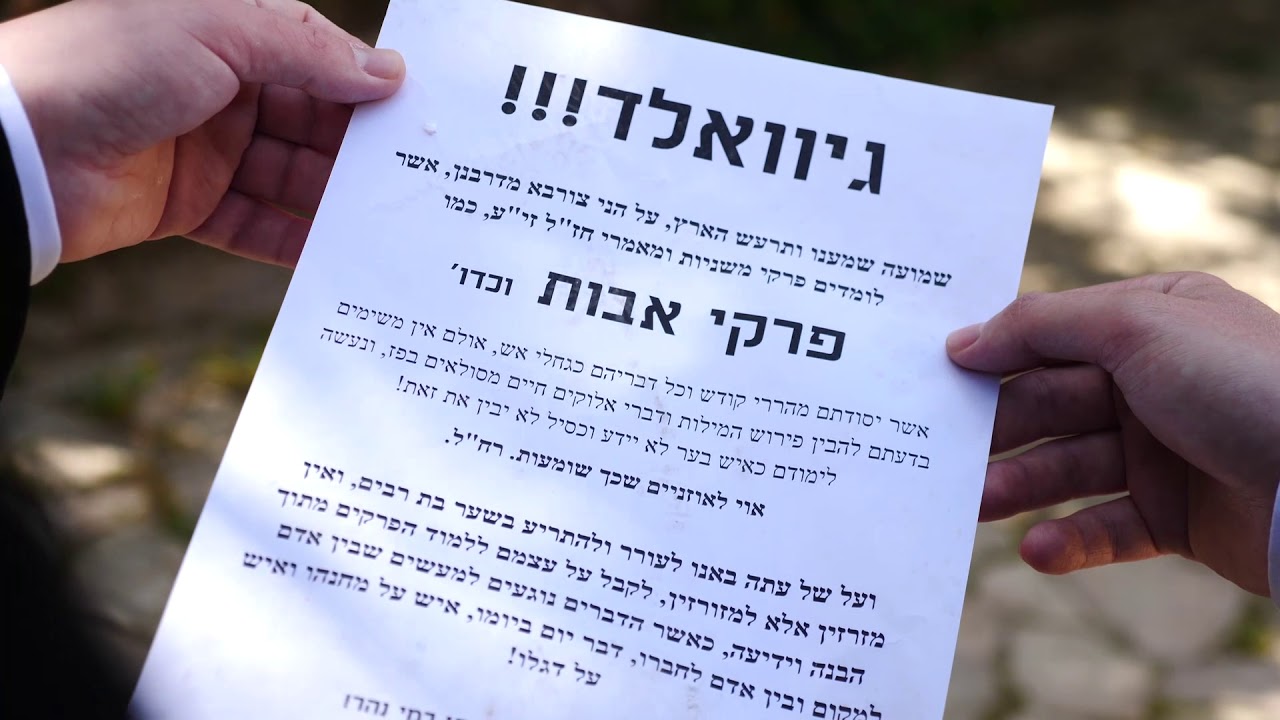 גיוואלד!!!
שמועה שמענו ותרעש הארץ, על הני צורבא מדרבנן, אשר
לומדים פרקי משניות ומאמרי חז''ל זי''ע, כמו
פרקי אבות וכדו'
אשר יסודתם מהררי קודש וכל דבריהם כגחלי אש, אולם אין משימים
בדעתם להבין פירוש המילות ודברי אלוקים חיים מסולאים בפז, ונעשה
לימודם כאיש בער לא יידע וכסיל לא יבין את זאת!
אוי לאוזניים שכך שומעות. רח''ל.
ועל של עתה באנו לעורר ולהתריע בשער בת רבים, ואין
מזרזין אלא למזורזין, לקבל על עצמם ללמוד הפרקים מתוך
הבנה וידיעה, כאשר הדברים נוגעים למעשים שבין אדם
למקום ובין אדם לחברו, דבר יום ביומו, איש על מחנהו ואיש
על דגלו!
בתי נהרו